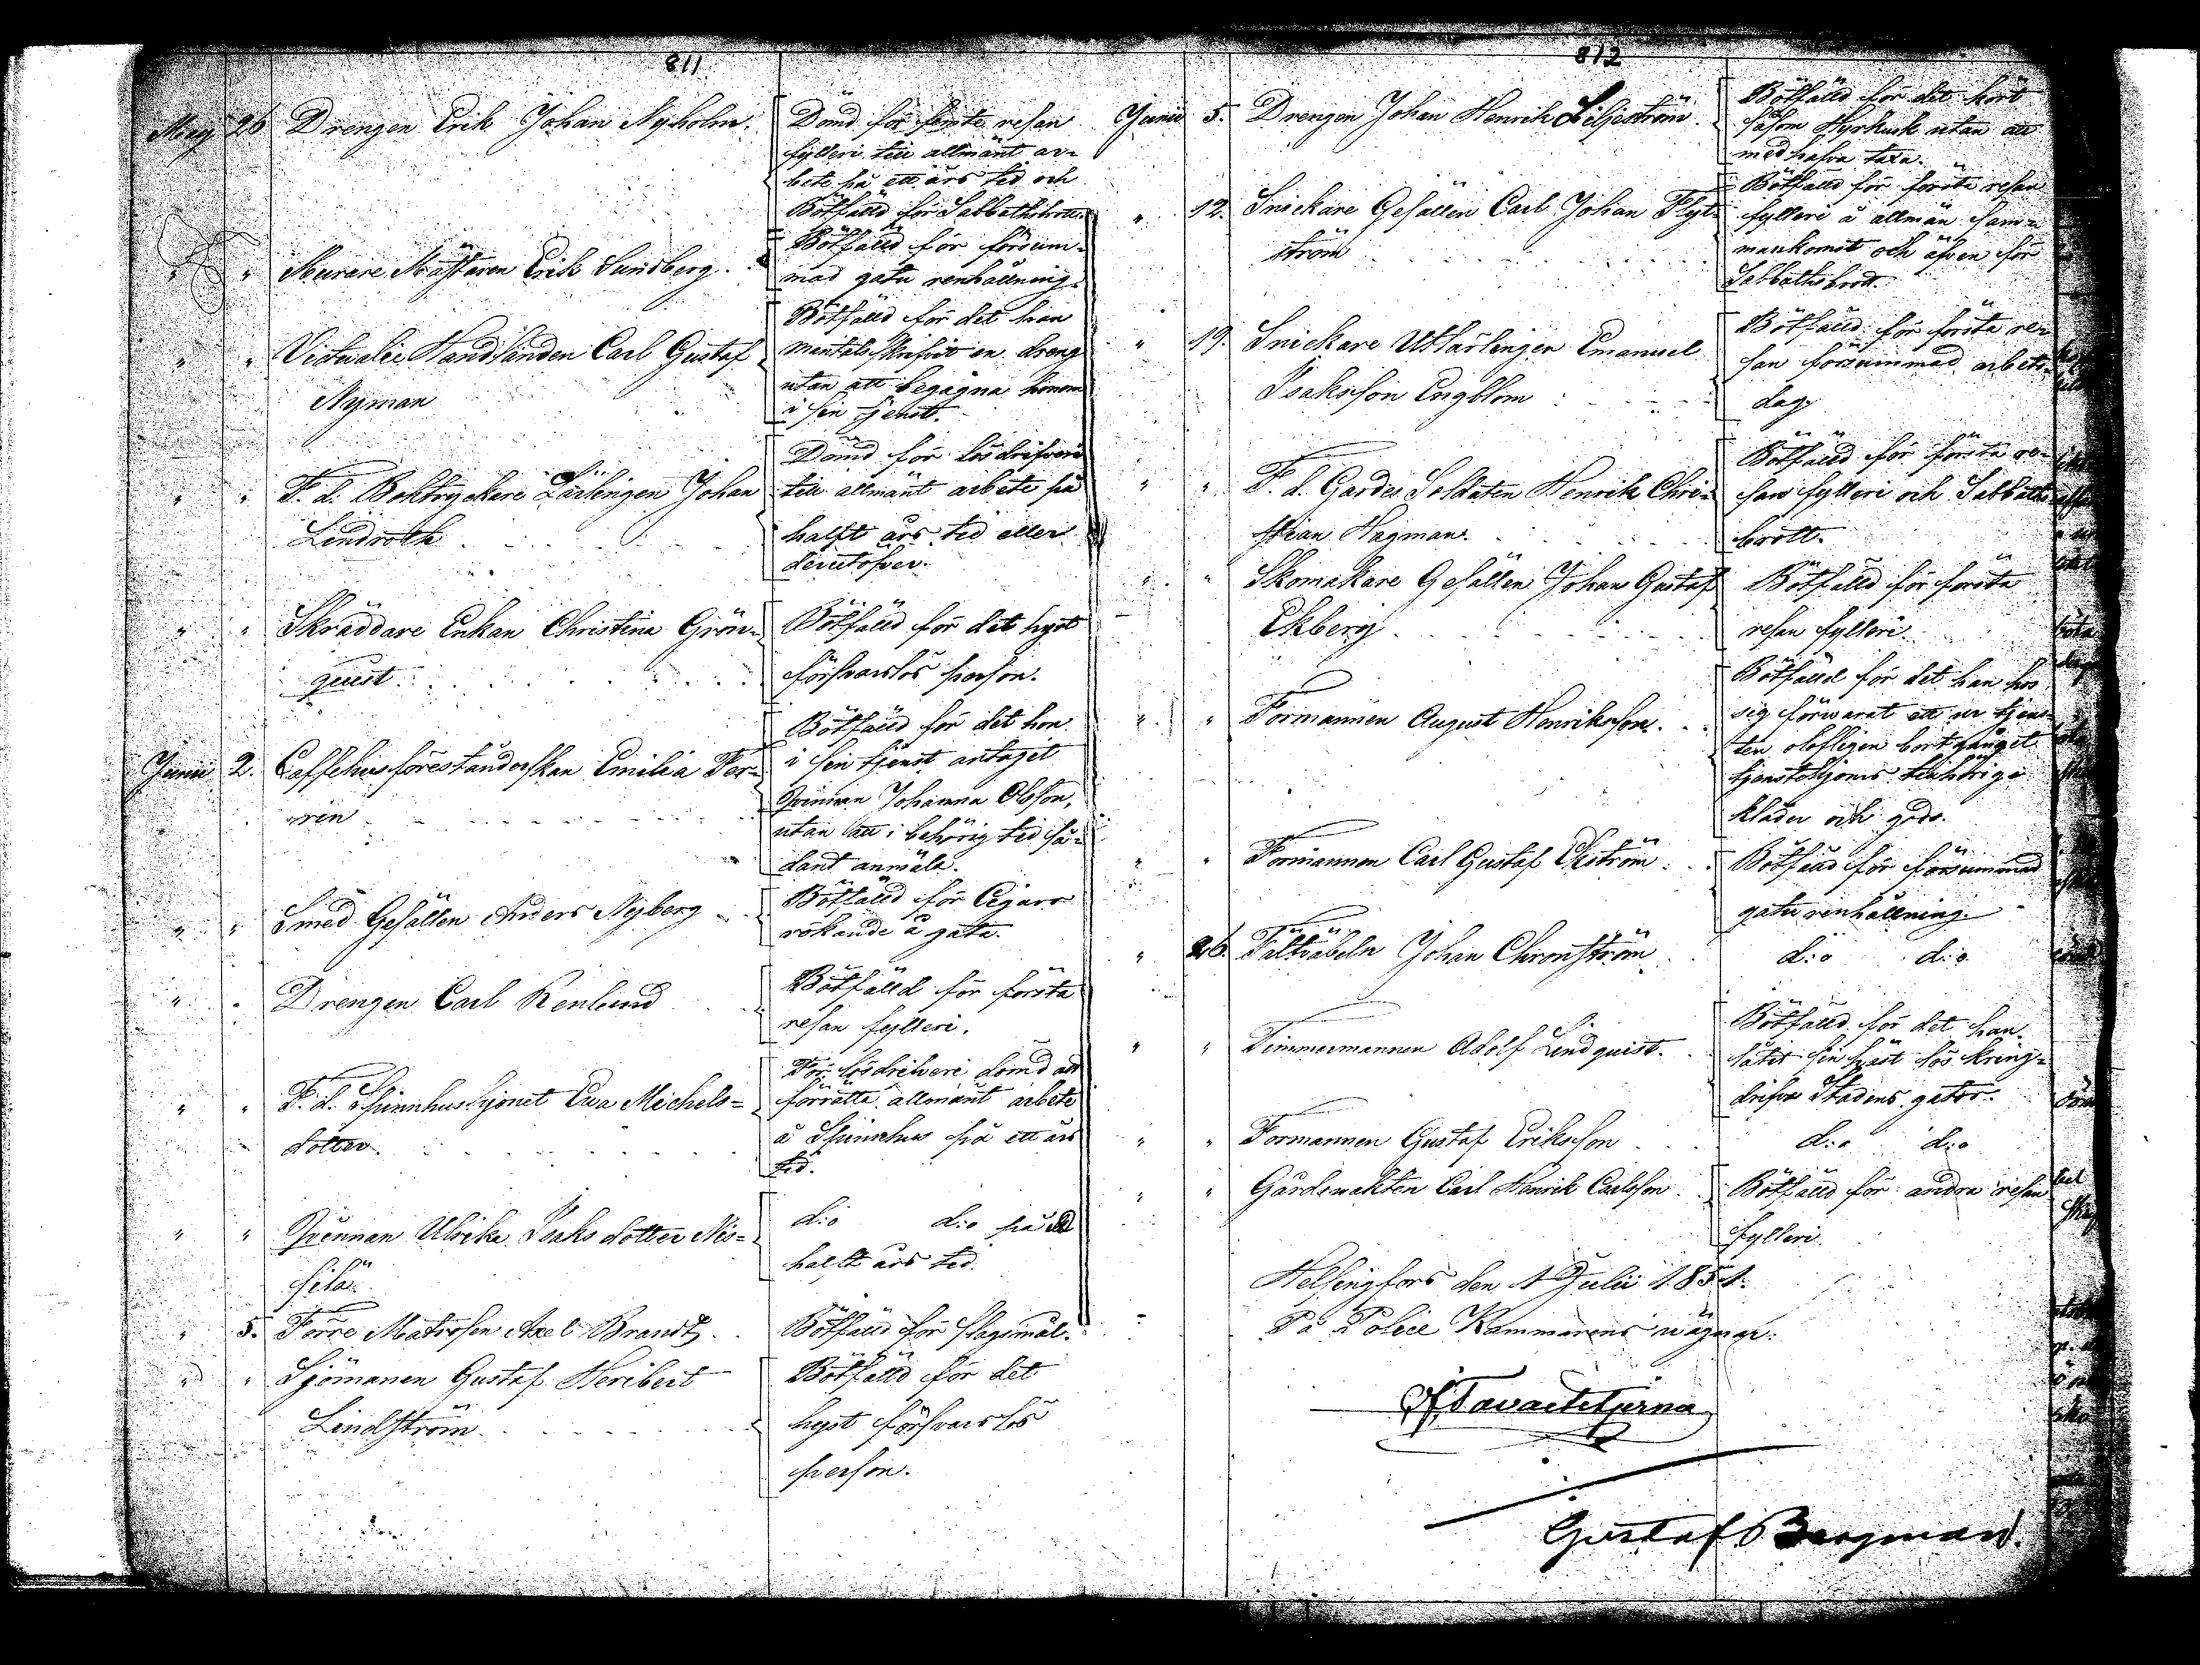 811
May 26 Drengen Erik Johan Nyholm.
Dömd för femte resan
fylleri till allmänt ar-
bete på ett års tid och
Bötfälld för Sabbathsbrott
" " Murare Mästaren Erik Sundberg.
Bötfälld för försum-
mad gatu renhållning.
" " Victualie Handlanden Carl Gustaf
Nyman
Bötfälld för det han
mantalsskrifvit en dreng
utan att begagna honom
i sin tjenst.
" " F. d. Boktryckare Lärlingen Johan
Lindroth
Dömd för lösdrifveri
till allmänt arbete på
halft års tid eller
derutöfver.
" " Skräddare Enkan Christina Grön-
quist
Bötfälld för det hyst
försvarslös person.
Junii 2. Caffehusföreståndarskan Emilia
Bötfälld för det hon
i sin tjenst antaget
Qvinnan Johanna Olsson,
utan att i behörig tid så-
dant anmäla.
" " Smed Gesällen Anders Nyberg
Bötfälld för Cigarr
rökande å gata.
" " Drengen Carl Renlund
Bötfälld för första
resan fylleri.
" " F. d. Spinnhushjonet Eva Michels-
dotter
För lösdriveri dömd att
förrätta allmänt arbete
å Spinnhus på ett års
tid.
" " Qvinnan Ulrika Isaks dotter Nis-
silä
d:o d:o på ett
halft års tid.
" 5. Förre Matrosen Axel Brandt
Bötfälld för slagsmål.
" " Sjömanen Gustaf Heribert
Lindström
Bötfälld för det
hyst försvarslös
person.
812
Junii 5. Drengen Johan Henrik Liljeström
Bötfälld för det kört
såsom Hyrkusk utan att
medhafva taxa.
" 12. Snickare Gesällen Carl Johan Flyt-
ström
Bötfälld för första resan
fylleri å allmän sam-
mankomst och äfven för
Sabbathsbrott.
" 19. Snickare Utlärlingen Emanuel
Isaksson Engblom
Bötfälld för första re-
san försummad arbets-
dag.
" " F. d. Gardes Soldaten Henrik Chri-
stian Hagman.
Bötfälld för första re-
san fylleri och Sabbaths
brott.
" " Skomakare Gesällen Johan Gustaf
Ekberg.
Bötfälld för första
resan fylleri.
" " Formannen August Henriksson.
Bötfälld för det han hos
sig förwarat ett ur tjens-
ten olofligen bortgånget
tjenstehjons tillhörige
kläder och gods.
" " Formannen Carl Gustaf Ekström
Bötfälld för försummad
gatu renhållning.
" 26. Fältväbeln Johan Chronström
d:o d:o
" " Timmermannen Adolf Lindquist.
Bötfälld för det han
låtit sin häst lös kring-
drifva Stadens gator.
" " Formannen Gustaf Eriksson
d:o d:o
" " Gårdswakten Carl Henrik Carlsson
Bötfälld för andra resan
fylleri.
Helsingfors den 1 Julii 1854.
På Police Kammarens wägnar:
Gustaf Bergman.